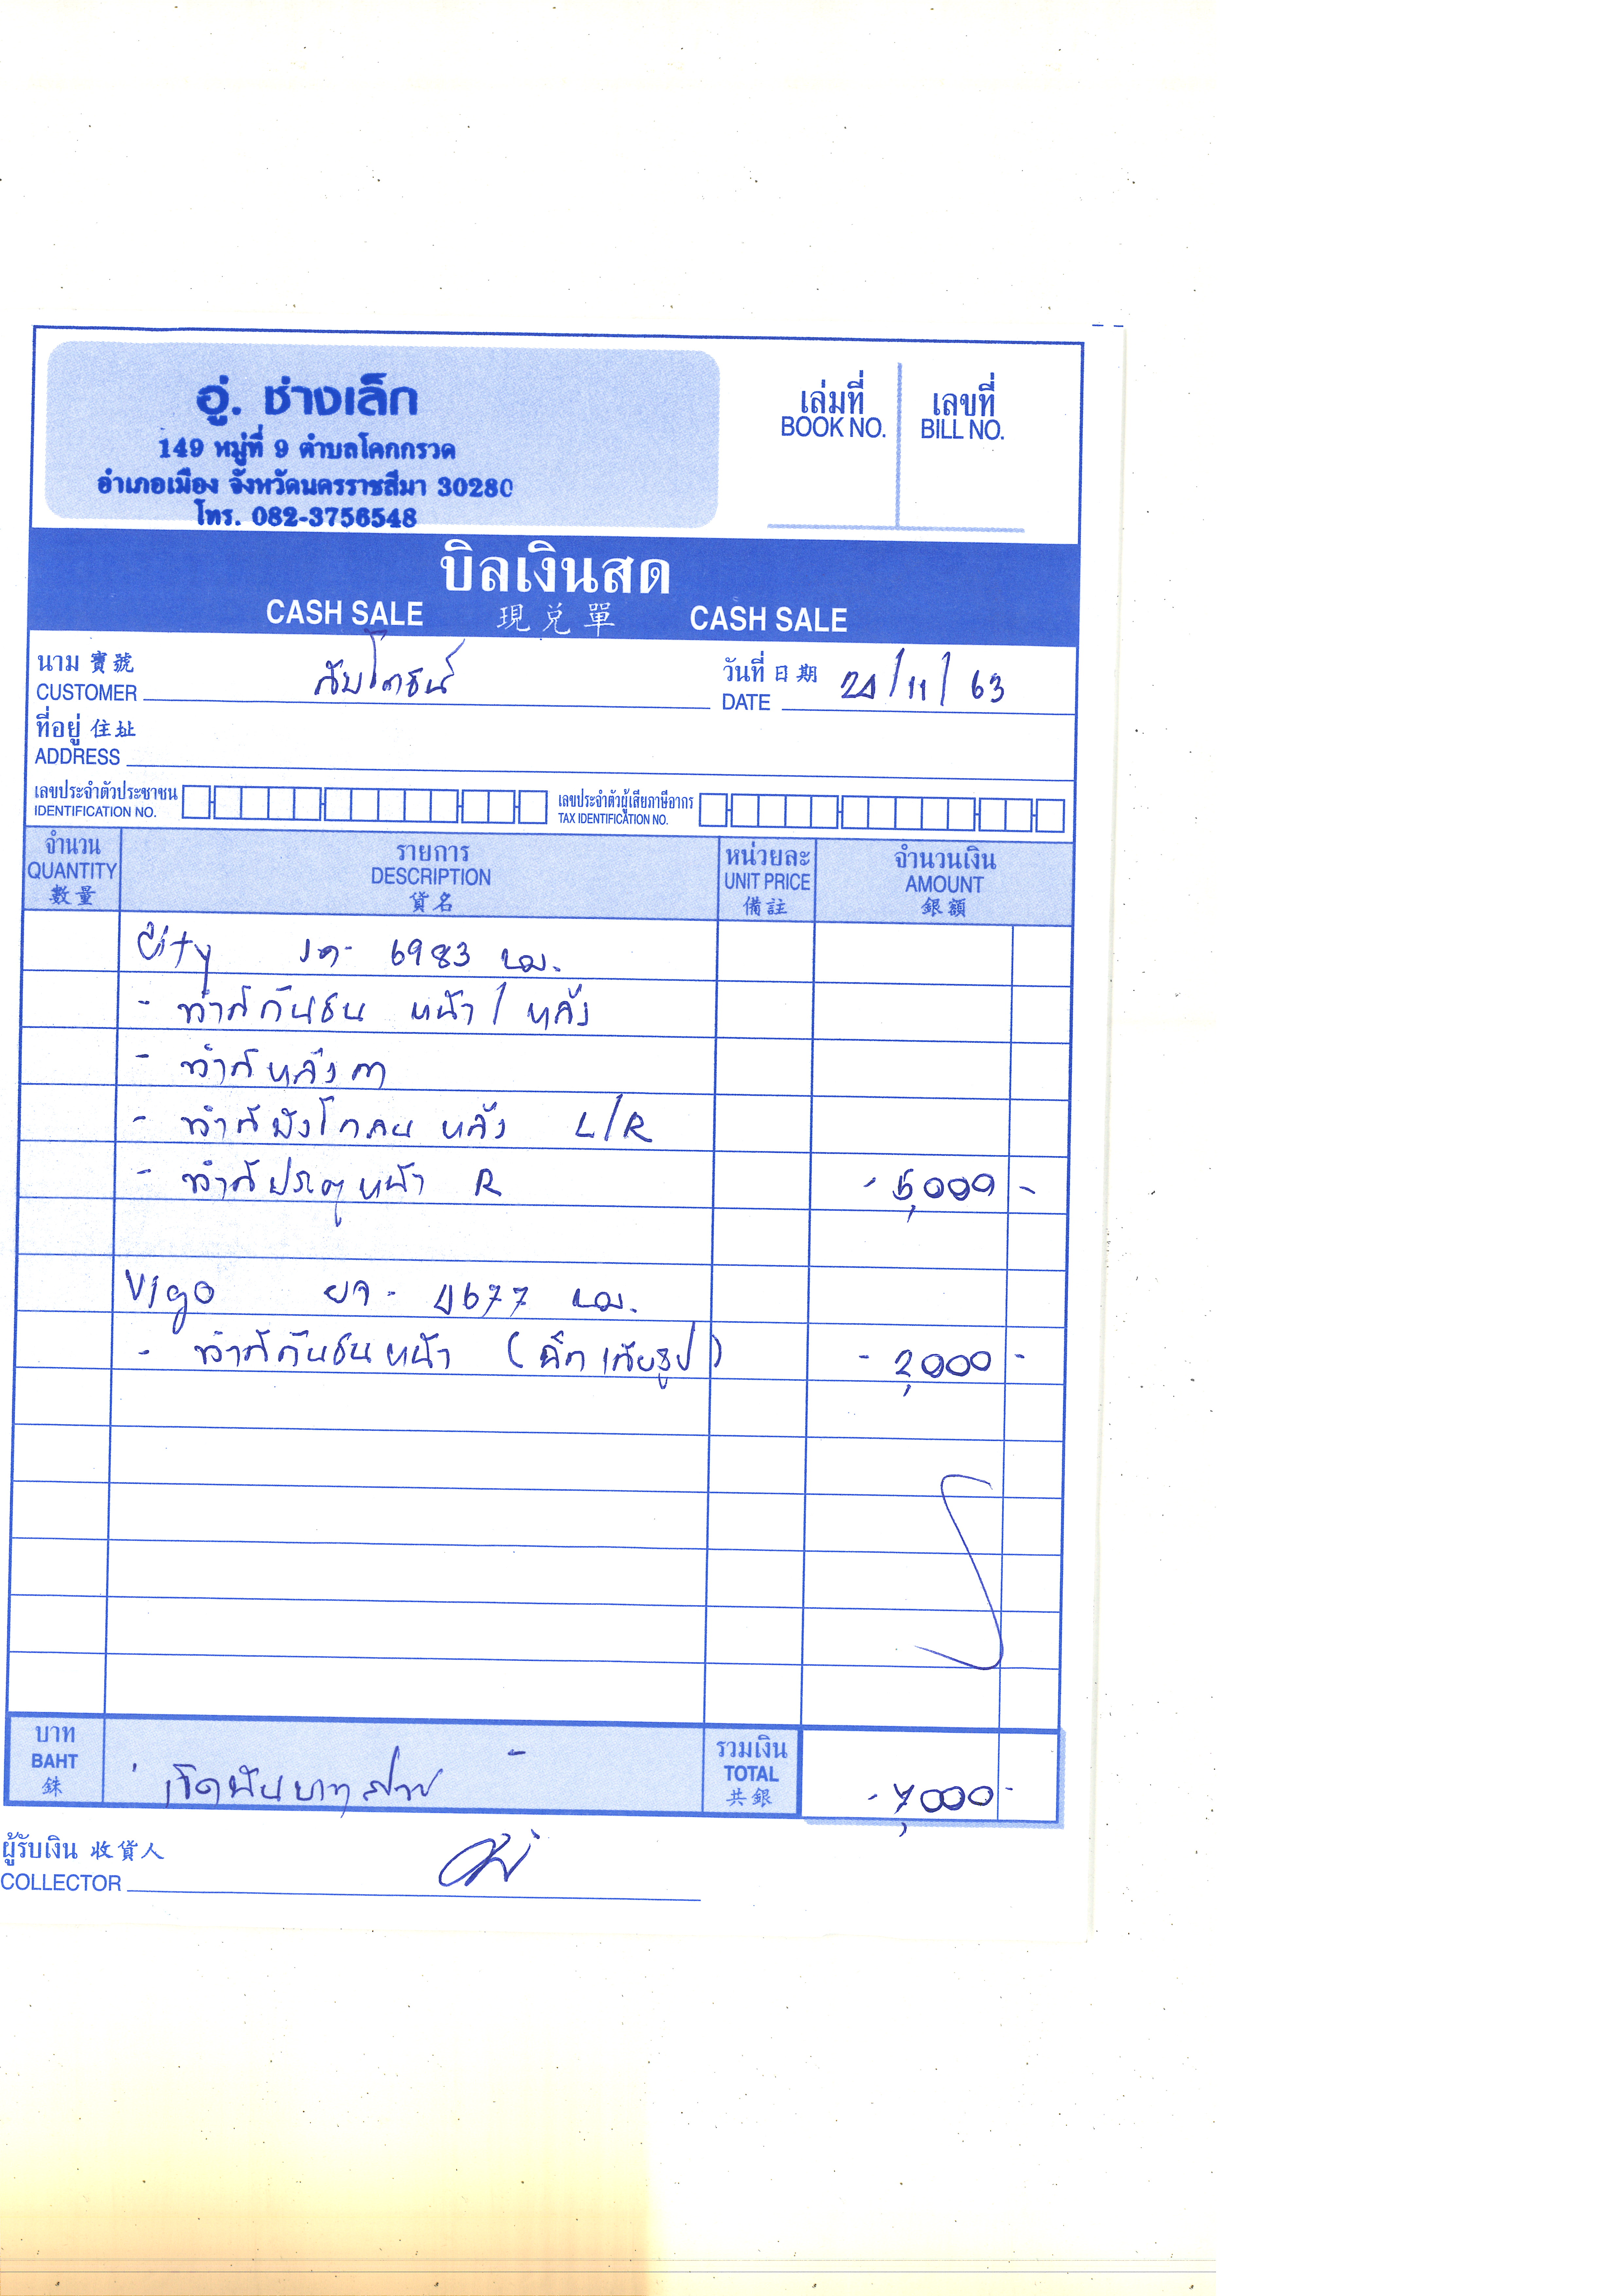 อู่. ช่างเล็ก
149 หมู่ที่ 9 ตำบลโคกกรวด
อำเภอเมือง จังหวัดนครราชสีมา 30280
โทร. 082-3756548
เล่มที่ เลขที่
BOOK NO. BILL NO.
บิลเงินสด
CASH SALE 現兌單 CASH SALE
นาม 寶號 วันที่ 日期
CUSTOMER DATE /11/63
ที่อยู่ 住址
ADDRESS
เลขประจำตัวประชาชน เลขประจำตัวผู้เสียภาษีอากร
IDENTIFICATION NO. TAX IDENTIFICATION NO.
จำนวน รายการ หน่วยละ จำนวนเงิน
QUANTITY DESCRIPTION UNIT PRICE AMOUNT
數量 貨名 備註 銀額
City 6983 นม.
- ทำสีกันชน หน้า / หลัง
- ทำสีหลังคา
- ทำสีบังโคลน หลัง L/R
- ทำสีประตูหน้า R - 5,000 -
Vigo 4677 นม.
- ทำสีกันชนหน้า - 2,000 -
บาท รวมเงิน
BAHT เจ็ดพันบาทถ้วน TOTAL - 7,000 -
銖 共銀
ผู้รับเงิน 收貨人
COLLECTOR